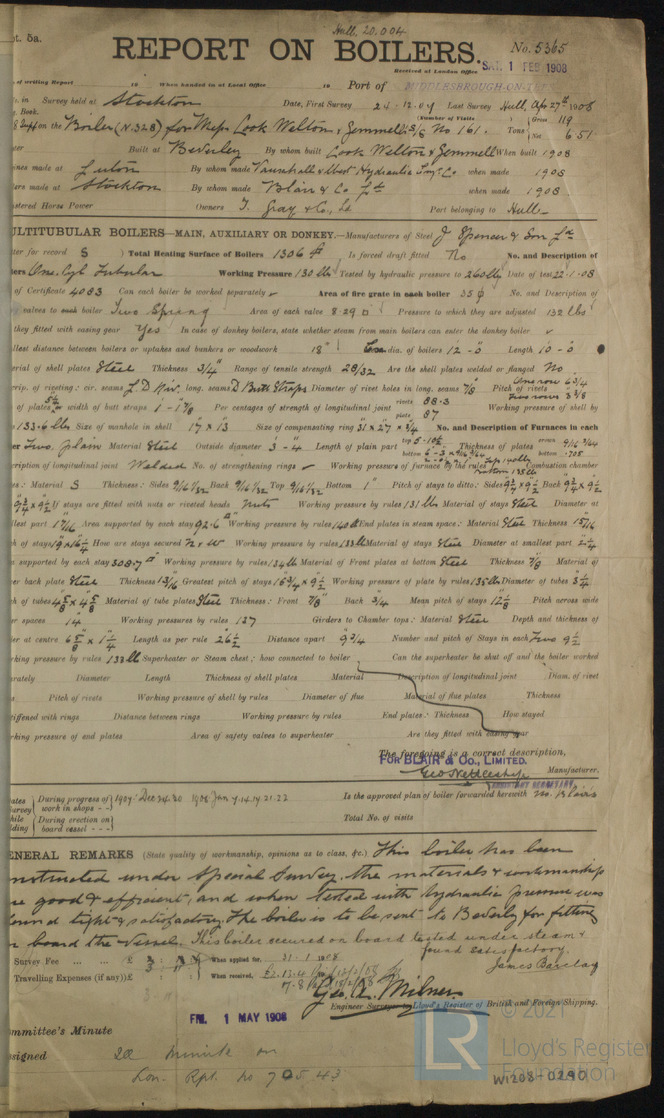 Hull. 20.004
pt. 5a.
REPORT ON BOILERS.
No. 5365
Received at London Office
SAT. 1 FEB 1908
of writing Report 19 When handed in at Local Office 19 Port of MIDDLESBROUGH-ON-TEES
in Survey held at Stockton Date, First Survey 24.12.07 Last Survey Hull, Apl 27th 1908
Book.
(Number of Visits ) Gross 119
on the Boiler (N. 328) for Messrs Cook Welton & Gemmell's S/S No 161. Tons Net 6.51
Built at Beverley By whom built Cook Welton & Gemmell When built 1908
ines made at Luton By whom made Vauxhall & West Hydraulic Eng. Co when made 1908
ers made at Stockton By whom made Blair & Co Ld when made 1908
istered Horse Power Owners T. Gray & Co., Ld Port belonging to Hull
ULTITUBULAR BOILERS—MAIN, AUXILIARY OR DONKEY.—Manufacturers of Steel J Spencer & Son Ld
ter for record S ) Total Heating Surface of Boilers 1306 Is forced draft fitted No No. and Description of
ers One. Cyl. Tubular Working Pressure 130 lbs Tested by hydraulic pressure to 260 lbs Date of test 22.1.08
of Certificate 4083 Can each boiler be worked separately Area of fire grate in each boiler 35 No. and Description of
valves to each boiler Two Spring Area of each valve 8.29 Pressure to which they are adjusted 132 lbs
they fitted with easing gear Yes In case of donkey boilers, state whether steam from main boilers can enter the donkey boiler
llest distance between boilers or uptakes and bunkers or woodwork 18" dia. of boilers 12-0 Length 10-0
erial of shell plates Steel Thickness 3/4" Range of tensile strength 28/32 Are the shell plates welded or flanged No
crip. of riveting: cir. seams L D Riv long. seams D Butt Straps Diameter of rivet holes in long. seams 7/8 Pitch of rivets One row 6 3/4 Two rows 3 3/8
of plates or width of butt straps 1-1 7/8 Per centages of strength of longitudinal joint rivets 88.3 plate 87 Working pressure of shell by
s 133.6 lbs Size of manhole in shell 17" x 13 Size of compensating ring 31 x 27 x 3/4 No. and Description of Furnaces in each
er Two, plain Material Steel Outside diameter 3-4 Length of plain part top 5-10 bottom Thickness of plates crown 9/16 bottom .705
cription of longitudinal joint Welded No. of strengthening rings Working pressure of furnace by the rules Combustion chamber
es: Material S Thickness: Sides 9/16 Back 9/16 Top 9/16 Bottom 1" Pitch of stays to ditto: Sides 9 x 9 1/2 Back 9 1/4 x 9 1/2
If stays are fitted with nuts or riveted heads nuts Working pressure by rules 131 lbs Material of stays Steel Diameter at
llest part 1 7/16 Area supported by each stay 92.6 Working pressure by rules 140 lbs End plates in steam space: Material Steel Thickness 15/16
h of stays 19 x 16 1/4 How are stays secured N & W Working pressure by rules 133 lbs Material of stays Steel Diameter at smallest part 2 1/4
supported by each stay 308.7 Working pressure by rules 134 lbs Material of Front plates at bottom Steel Thickness 7/8 Material of
er back plate Steel Thickness 13/16 Greatest pitch of stays 15 3/4 x 9 1/2 Working pressure of plate by rules 135 lbs Diameter of tubes 3 1/4
h of tubes 4 5/8 x 4 5/8 Material of tube plates Steel Thickness: Front 7/8" Back 3/4 Mean pitch of stays 12 Pitch across wide
er spaces 14" Working pressures by rules 137 Girders to Chamber tops: Material Steel Depth and thickness of
er at centre 6 5/8 x 1 1/4 Length as per rule 26 1/2 Distance apart 9 3/4 Number and pitch of Stays in each Two 9 1/2
rking pressure by rules 133 lbs Superheater or Steam chest; how connected to boiler Can the superheater be shut off and the boiler worked
rately Diameter Length Thickness of shell plates Material Description of longitudinal joint Diam. of rivet
Pitch of rivets Working pressure of shell by rules Diameter of flue Material of flue plates Thickness
tiffened with rings Distance between rings Working pressure by rules End plates: Thickness How stayed
rking pressure of end plates Area of safety valves to superheater Are they fitted with easing gear
The foregoing is a correct description,
FOR BLAIR & CO., LIMITED.
Geo Nettleship Manufacturer.
ASSISTANT SECRETARY
ates During progress of work in shops - - 1907: Dec 24.30 1908 Jan 7.14.17.21.22 Is the approved plan of boiler forwarded herewith
urvey
hile During erection on board vessel - - - Total No. of visits
lding
ENERAL REMARKS (State quality of workmanship, opinions as to class, &c.) This boiler has been
nstructed under Special Survey, the materials & workmanship
re good & efficient, and when tested with hydraulic pressure was
ound tight & satisfactory. The boiler is to be sent to Beverley for fitting
n board the Vessel. This boiler secured on board tested under steam &
found satisfactory.
James Barclay
Survey Fee ... ... £ 3 : : When applied for, 31.1.1908
Travelling Expenses (if any) £ : : When received,
Geo. A. Milner
Engineer Surveyor to Lloyd's Register of British and Foreign Shipping.
FRI. 1 MAY 1908
ommittee's Minute
ssigned See minute on
Lon. Rpt. No 70543
© 2021
LR
Lloyd's Register
Foundation
W1208-0290